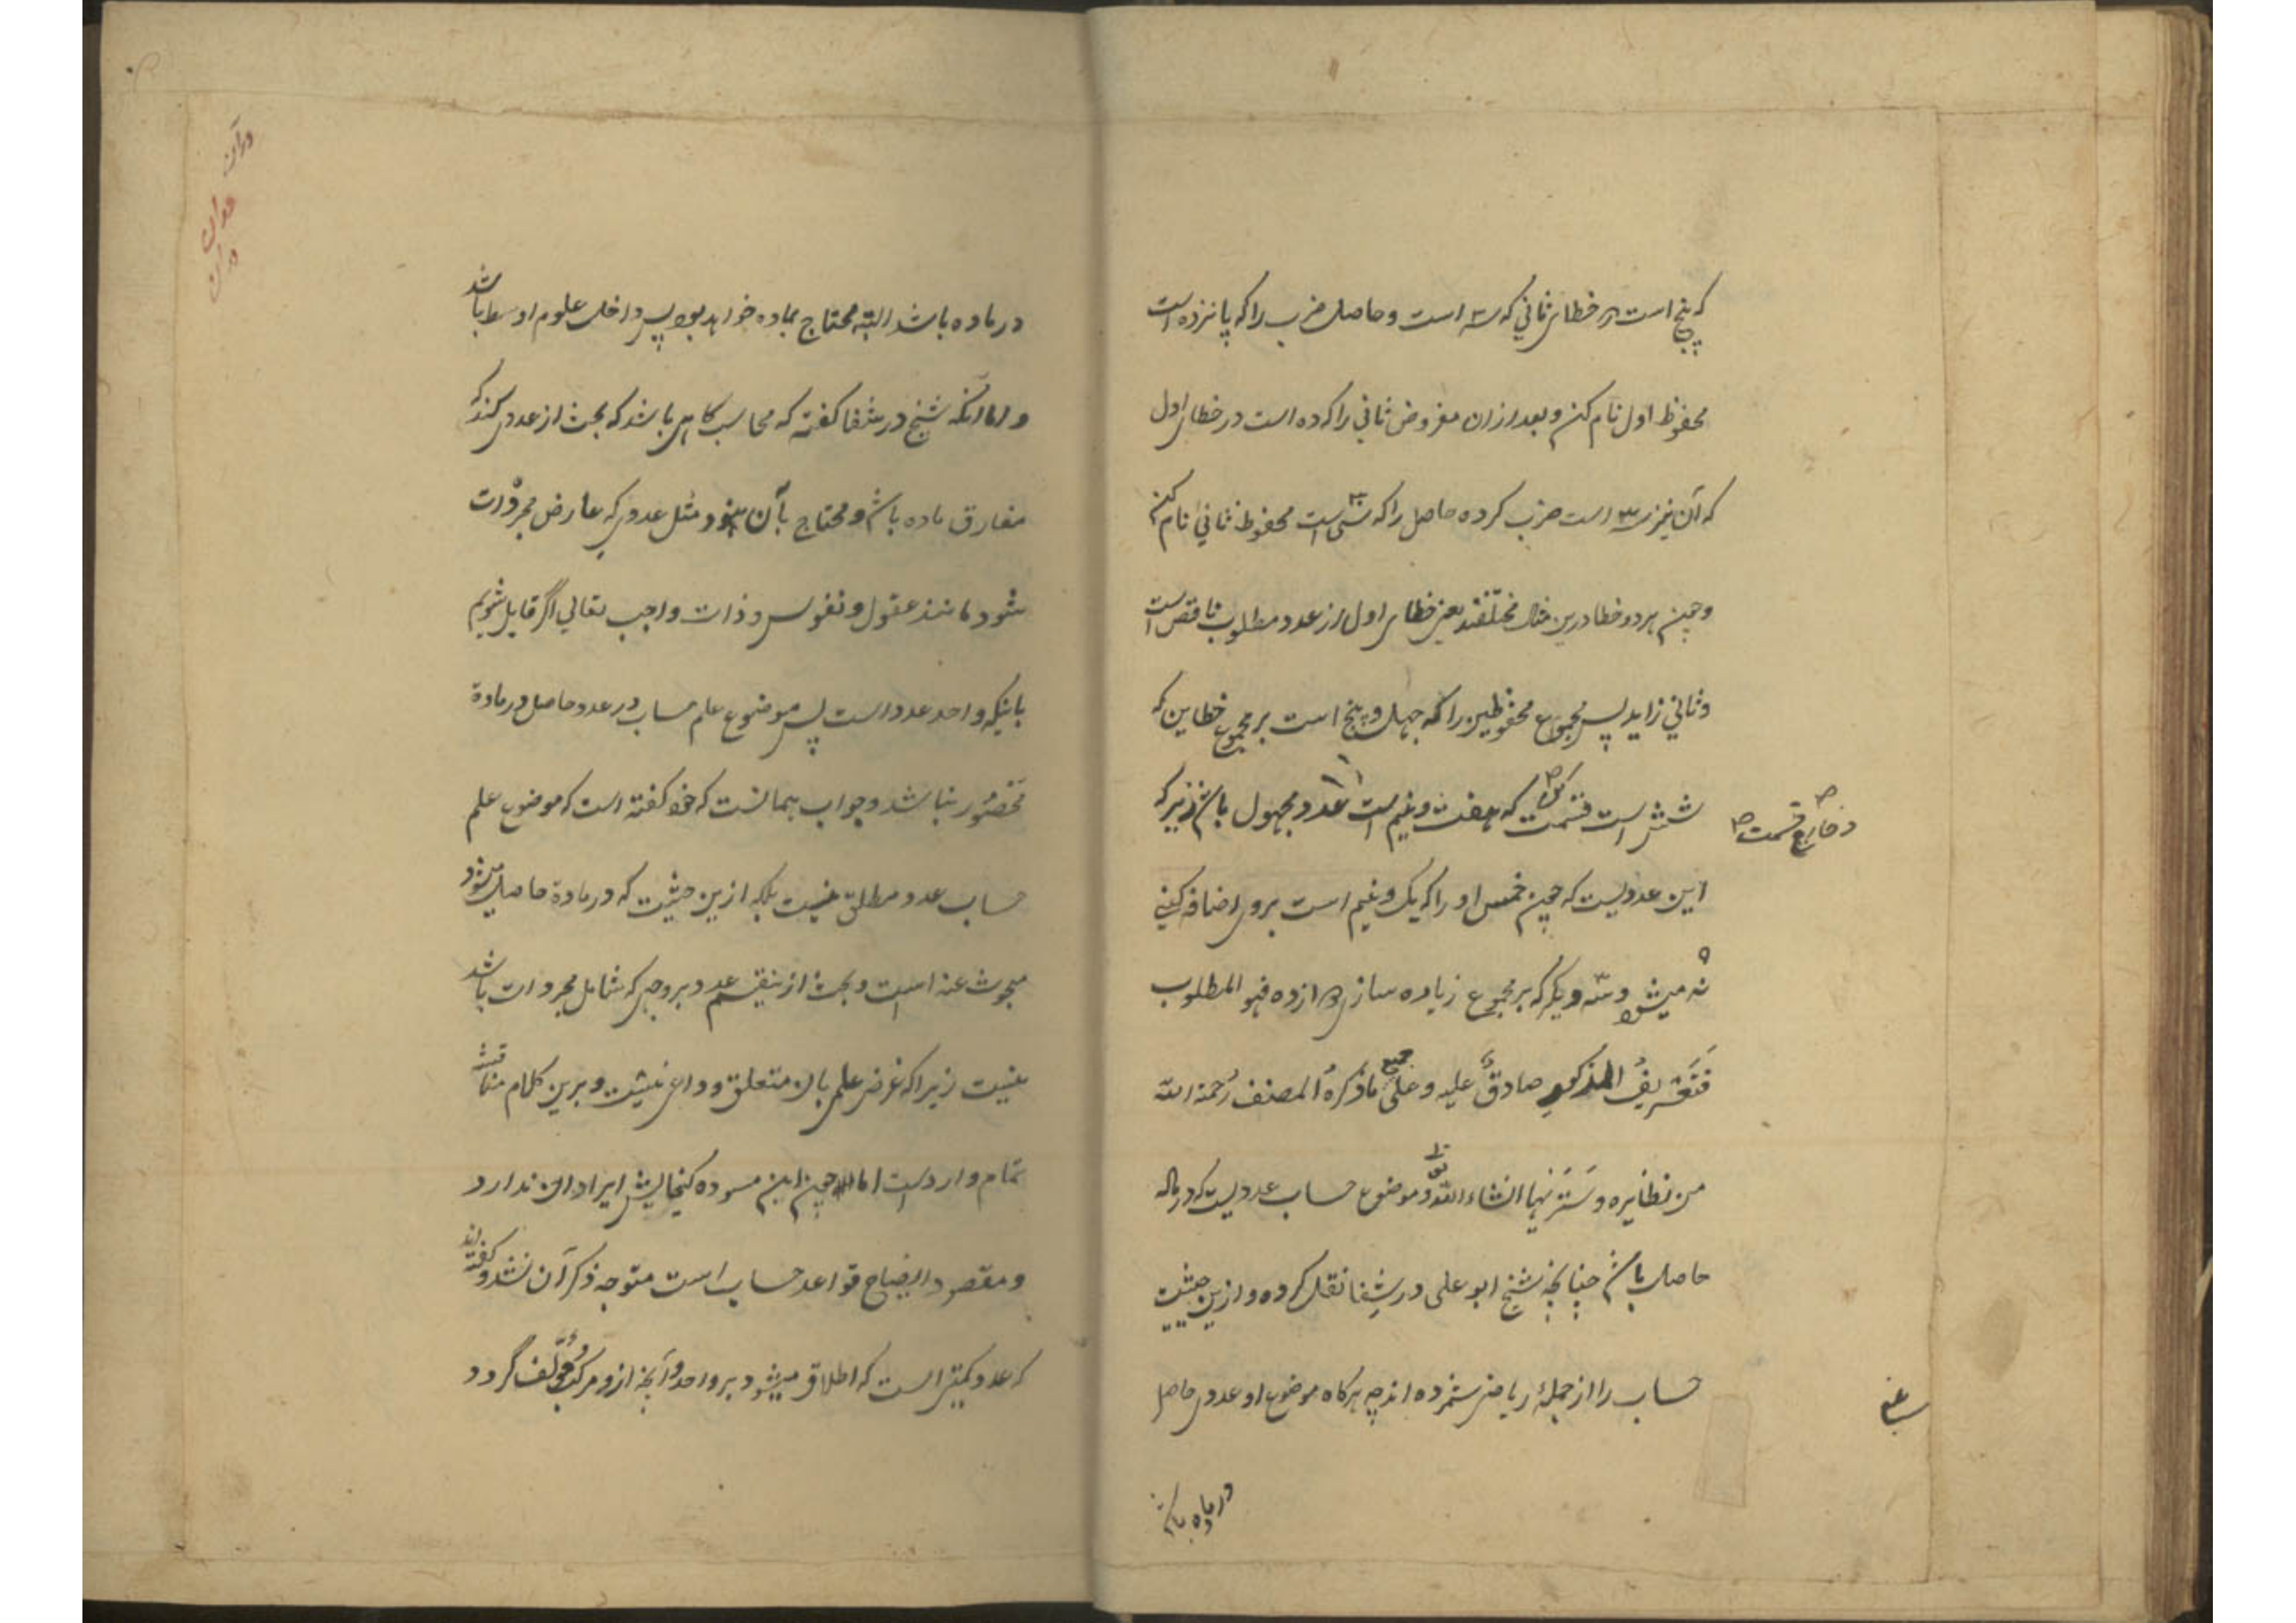 که پنج است در خطای ثانی که سه است و حاصل ضرب را که پانزده است
محفوظ اول نام کن و بعد از ان مفروض ثانی را که ده است در خطای اول
که آن نیز سه است ضرب کرده حاصل را که سی است محفوظ ثانی نام کن
و چون هر دو خطا درین مثال مختلفند یعنی خطای اول از عدد مطلوب ناقص است
و ثانی زاید پس مجموع محفوظین را که چهل و پنج است بر مجموع خطاین که
شش است قسمت کن که هفت و نیم است عدد مجهول باشد زیرا که
و خارج قسمت
این عددیست که چون خمس او را که یک و نیم است بروی اضافه کنی
نه میشود و سه دیگر که بر مجموع زیاده سازی دوازده فهو المطلوب
فتعریف المذکور صادق علیه و علی جمیع ما ذکره المصنف رحمة الله
من نظایره و سترنیها انشاء الله تعالی و موضوع حساب عددیست که در ماده
حاصل باشد چنانچه شیخ ابو علی در شفا نقل کرده و ازین حیثیت
حساب را از جملهٔ ریاضی شمرده اند چه هرگاه موضوع او عددی حاصل
در ماده باشد
در ماده باشد البته محتاج بماده خواهد بود پس داخل علوم اوسط باشد
و اما آنکه شیخ در شفا گفته که محاسب گاهی باشد که بحث از عددی کند که
مفارق ماده باشد و محتاج بآن نبود مثل عددی که عارض مجردات
شود مانند عقول و نفوس و ذات واجب تعالی اگر قایل شویم
باینکه واحد عدد است پس موضوع علم حساب در عدد حاصل در مادة
مخصور نباشد و جواب همانست که خود گفته است که موضوع علم
حساب عدد مطلق نیست بلکه ازین حیثیت که در مادة حاصل میشود
مبحوث عنه است و بحث از تقسیم عدد بر وجهی که شامل مجردات باشد
نیست زیرا که غرض علمی بان متعلق و داعی نیست و برین کلام مناقشه
تمام وارد است اما چون این مسوده گنجایش ایراد ان ندارد
و مقصود ایضاح قواعد حساب است متوجه ذکر آن نشد و گفته اند
که عدد کمیتی است که اطلاق میشود بر واحد و آنچه ازو مرکب و مؤلف گردد